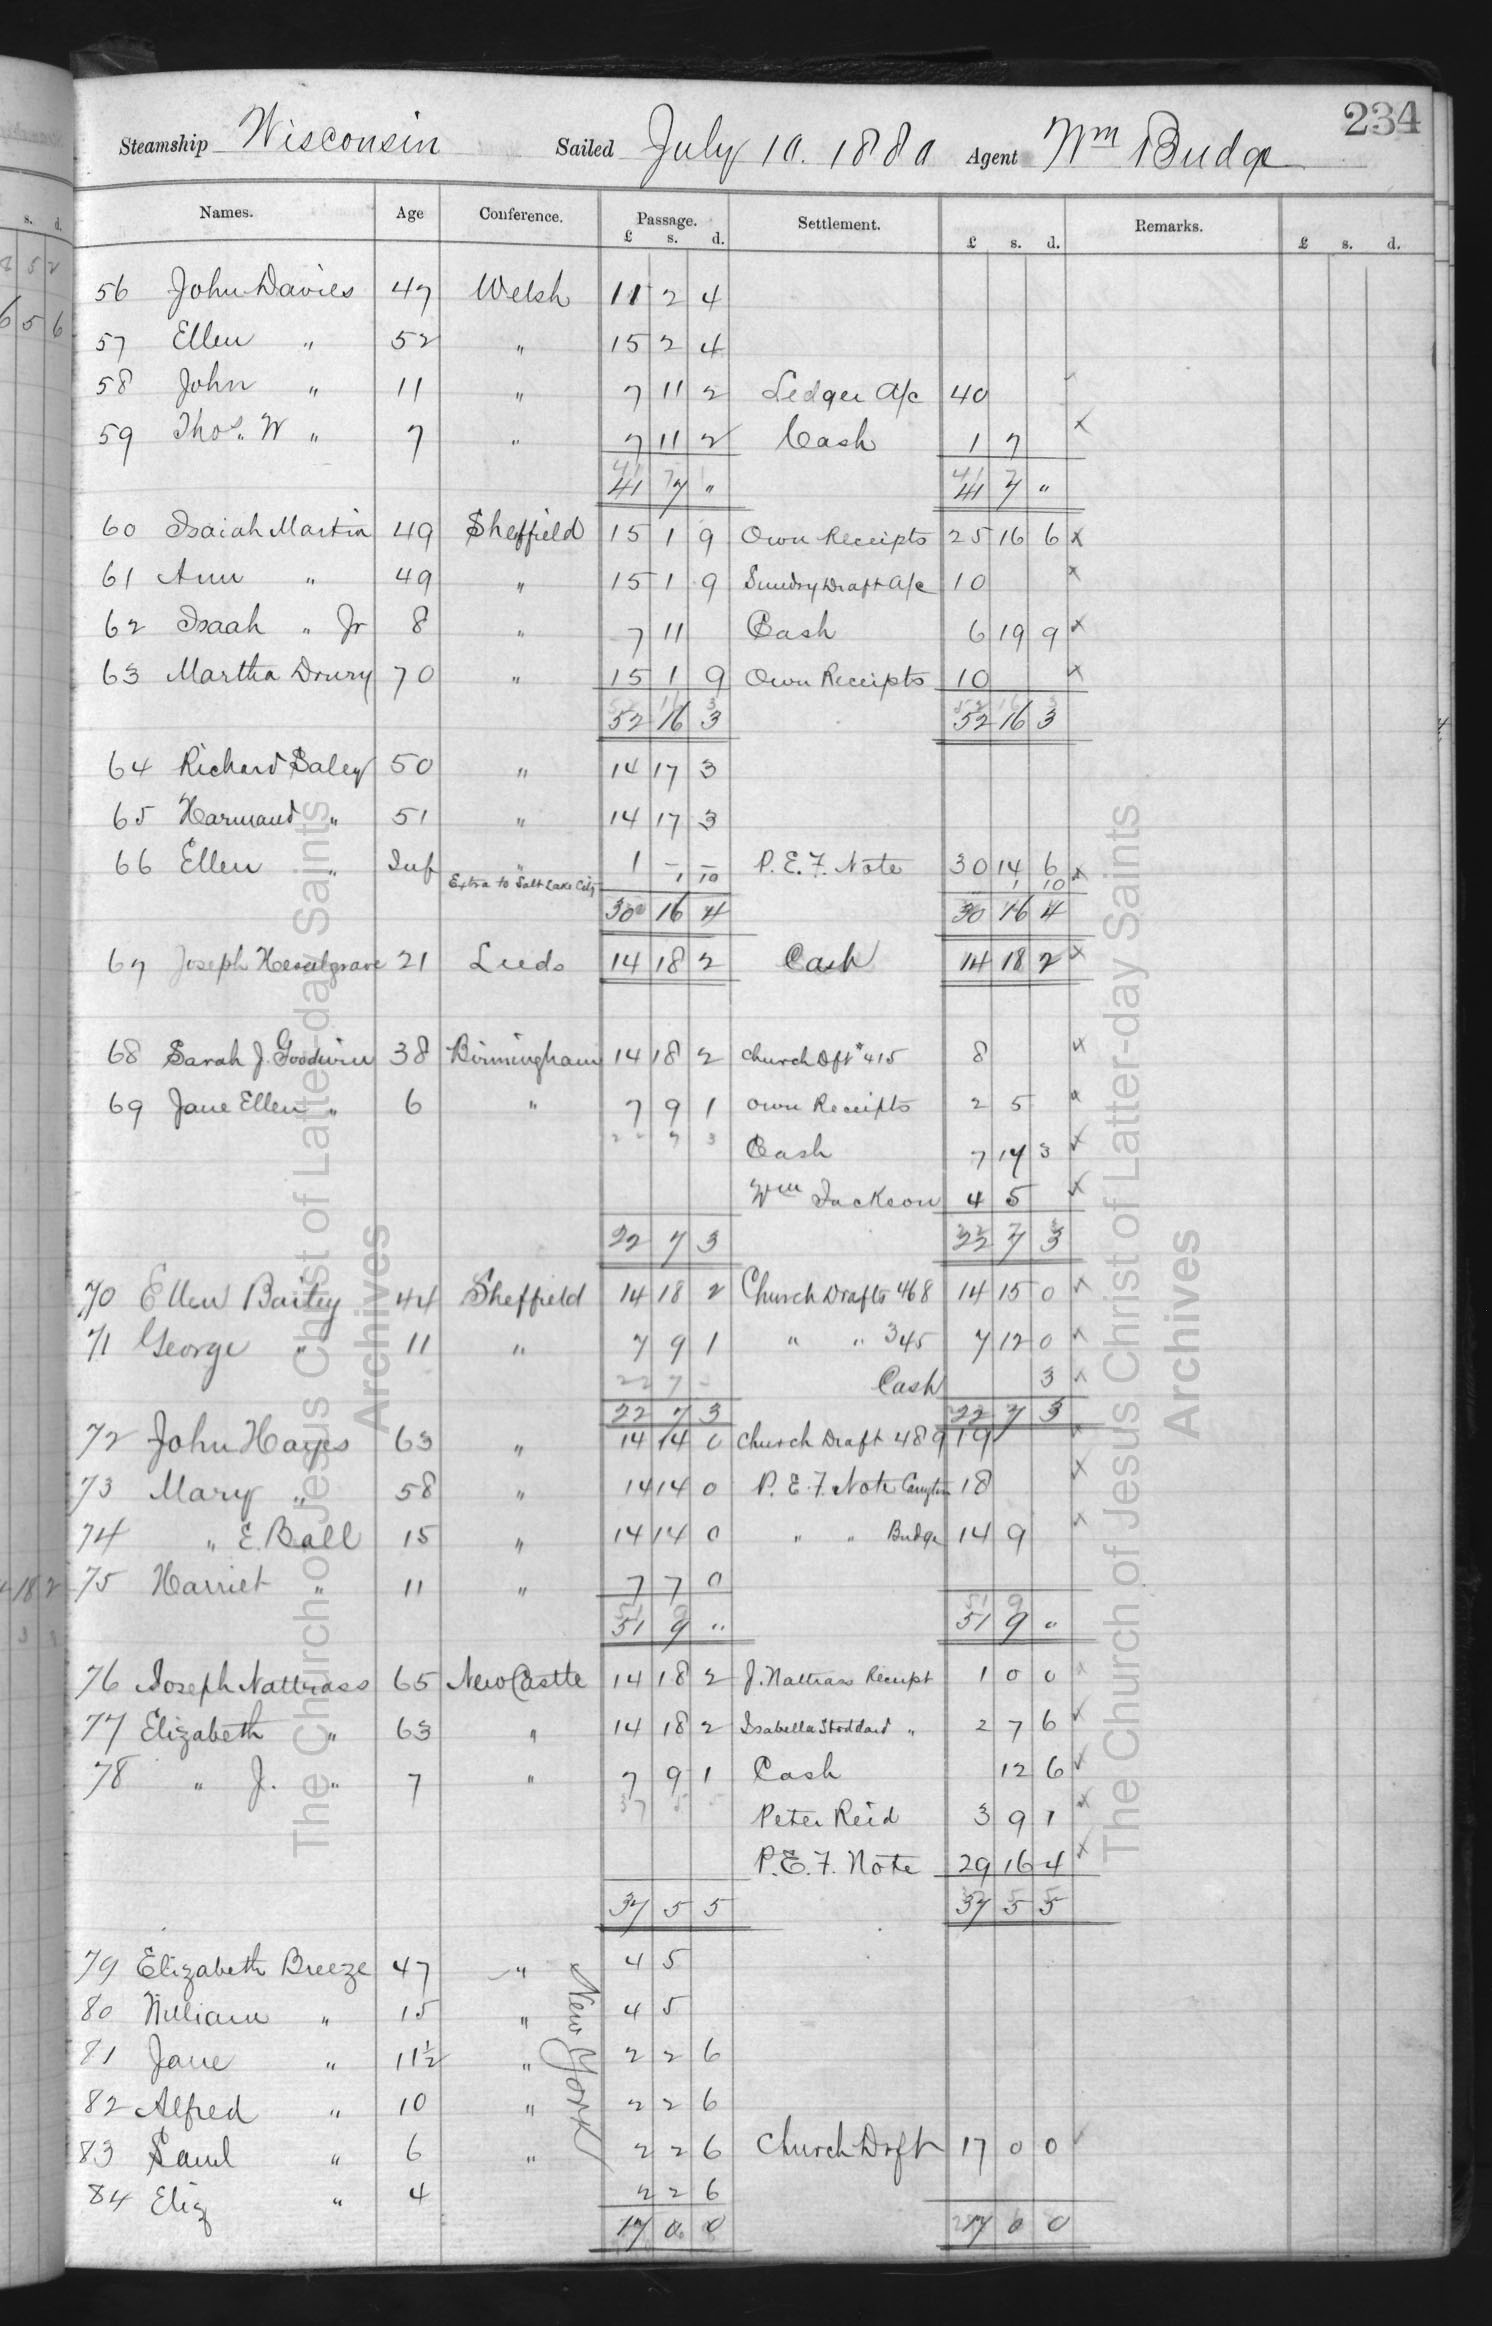 234
Steamship Wisconsin Sailed July 10. 1880 Agent Wm Budge
Names. Age Conference. Passage. Settlement. Remarks.
£ s. d. £ s. d. £ s. d.
56 John Davies 47 Welsh 11 2 4
57 Ellen " 52 " 15 2 4
58 John " 11 " 7 11 2 Ledger a/c 40
59 Thos. W " 7 " 7 11 2 Cash 1 7 x
41 7 " 41 7 "
60 Isaiah Martin 49 Sheffield 15 1 9 Own Receipts 25 16 6 x
61 Ann " 49 " 15 1 9 Sundry Draft a/c 10 x
62 Isaah " Jr 8 " 7 11 Cash 6 19 9 x
63 Martha Drury 70 " 15 1 9 Own Receipts 10 x
52 16 3 52 16 3
64 Richard Saley 50 " 14 17 3
65 " 51 " 14 17 3
66 Ellen " Inf " 1 – – P.E.F. Note 30 14 6 x
Extra to Salt Lake City 1 10 1 10
30 16 4 30 16 4
67 Joseph 21 Leeds 14 18 2 Cash 14 18 2 x
68 Sarah J. Goodwin 38 Birmingham 14 18 2 Church Dft # 415 8 x
69 Jane Ellen " 6 " 7 9 1 Own Receipts 2 5 x
22 7 3 Cash 7 17 3 x
Wm Jackson 4 5 x
22 7 3 22 7 3
70 Ellen Bailey 44 Sheffield 14 18 2 Church Drafts 468 14 15 0 x
71 George " 11 " 7 9 1 " " 345 7 12 0 x
22 7 – Cash 3 x
22 7 3 22 7 3
72 John Hayes 63 " 14 14 0 Church Draft 489 19 x
73 Mary " 58 " 14 14 0 P.E.F. Note 18 x
74 " E. Ball 15 " 14 14 0 " " Budge 14 9 x
75 Harriet " 11 " 7 7 0
51 9 " 51 9 "
76 Joseph Nattrass 65 NewCastle 14 18 2 J. Nattrass Receipt 1 0 0 x
77 Elizabeth " 63 " 14 18 2 Isabella Stoddard " 2 7 6 x
78 " J. " 7 " 7 9 1 Cash 12 6 x
37 5 5 Peter Reid 3 9 1 x
P.E.F. Note 29 16 4 x
37 5 5 37 5 5
79 Elizabeth Breeze 47 " 4 5
80 William " 15 " 4 5
81 Jane " 11½ " 2 2 6
82 Alfred " 10 " 2 2 6
83 Saml " 6 " 2 2 6 Church Drft 17 0 0
84 Eliz " 4 2 2 6
17 0 0 17 0 0
New York
The Church of Jesus Christ of Latter-day Saints
Archives
The Church of Jesus Christ of Latter-day Saints
Archives